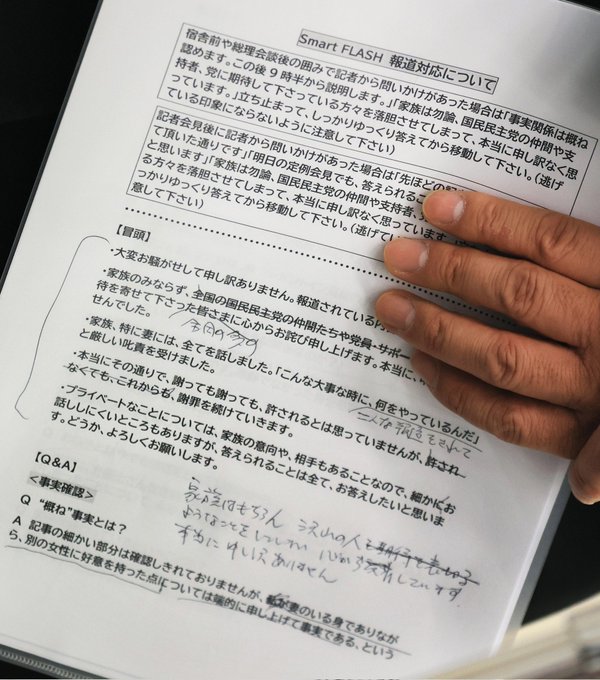 Smart FLASH 報道対応について
宿舎前や総理会談後の囲みで記者から問いかけがあった場合は「事実関係は概ね
認めます。この後９時半から説明します。」「家族は勿論、国民民主党の仲間や支
持者、党に期待して下さっている方々を落胆させてしまって、本当に申し訳なく思
っています。」立ち止まって、しっかりゆっくり答えてから移動して下さい。（逃げ
ている印象にならないように注意して下さい）
記者会見後に記者から問いかけがあった場合は「先ほどの
て頂いた通りです」「明日の定例会見でも、答えられるこ
と思います」「家族は勿論、国民民主党の仲間や支持者、
る方々を落胆させてしまって、本当に申し訳なく思っています。」
っかりゆっくり答えてから移動して下さい。（逃げてい
意して下さい）
【冒頭】
・大変お騒がせして申し訳ありません。報道されている内
・家族のみならず、全国の国民民主党の仲間たちや党員・サポー
待を寄せて下さった皆さまに心からお詫び申し上げます。本当に、
せんでした。
・家族、特に妻には、全てを話しました。「こんな大事な時に、何をやっているんだ」
と厳しい叱責を受けました。
・本当にその通りで、謝っても謝っても、許されるとは思っていませんが、許され
なくても、これからも、謝罪を続けていきます。
・プライベートなことについては、家族の意向や、相手もあることなので、細かにお
話ししにくいところもありますが、答えられることは全て、お答えしたいと思いま
す。どうか、よろしくお願いします。
【Q&A】
<事実確認>
家族はもちろん 沢山の人
本当に申し訳ありません
Q “概ね”事実とは？
A 記事の細かい部分は確認しきれておりませんが、妻のいる身でありなが
ら、別の女性に好意を持った点については端的に申し上げて事実である、という